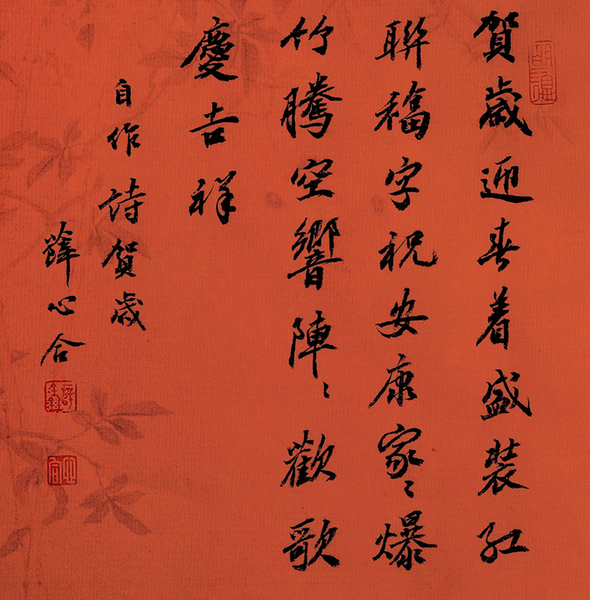 賀歲迎春着盛裝紅
聯福字祝安康家〻爆
竹騰空響陣〻歡歌
慶吉祥
自作詩賀歲
薛心合